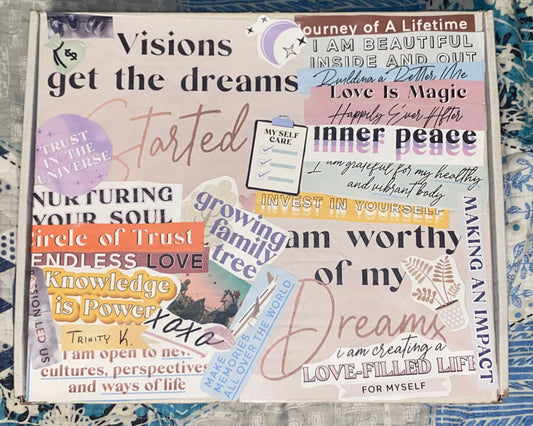 Visions
get the dreams
Started
TRUST
IN THE
UNIVERSE
Journey of A Lifetime
I AM BEAUTIFUL
INSIDE AND OUT
Building a Better Me
Love Is Magic
Happily Ever After
inner peace
I am grateful for my healthy
and vibrant body
INVEST IN YOURSELF
MY SELF
CARE
NURTURING
YOUR SOUL
Circle of Trust
ENDLESS LOVE
Knowledge
is Power
TRINITY K.
xoxo
SSION LED US
I am open to new
cultures, perspectives
and ways of life
growing
family
tree
MAKE
MEMORIES
ALL OVER THE WORLD
am worthy
of my
Dreams
i am creating a
LOVE-FILLED LIFE
FOR MYSELF
MAKING AN IMPACT